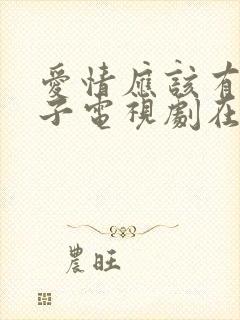 愛情應該有
子電視劇在
農旺